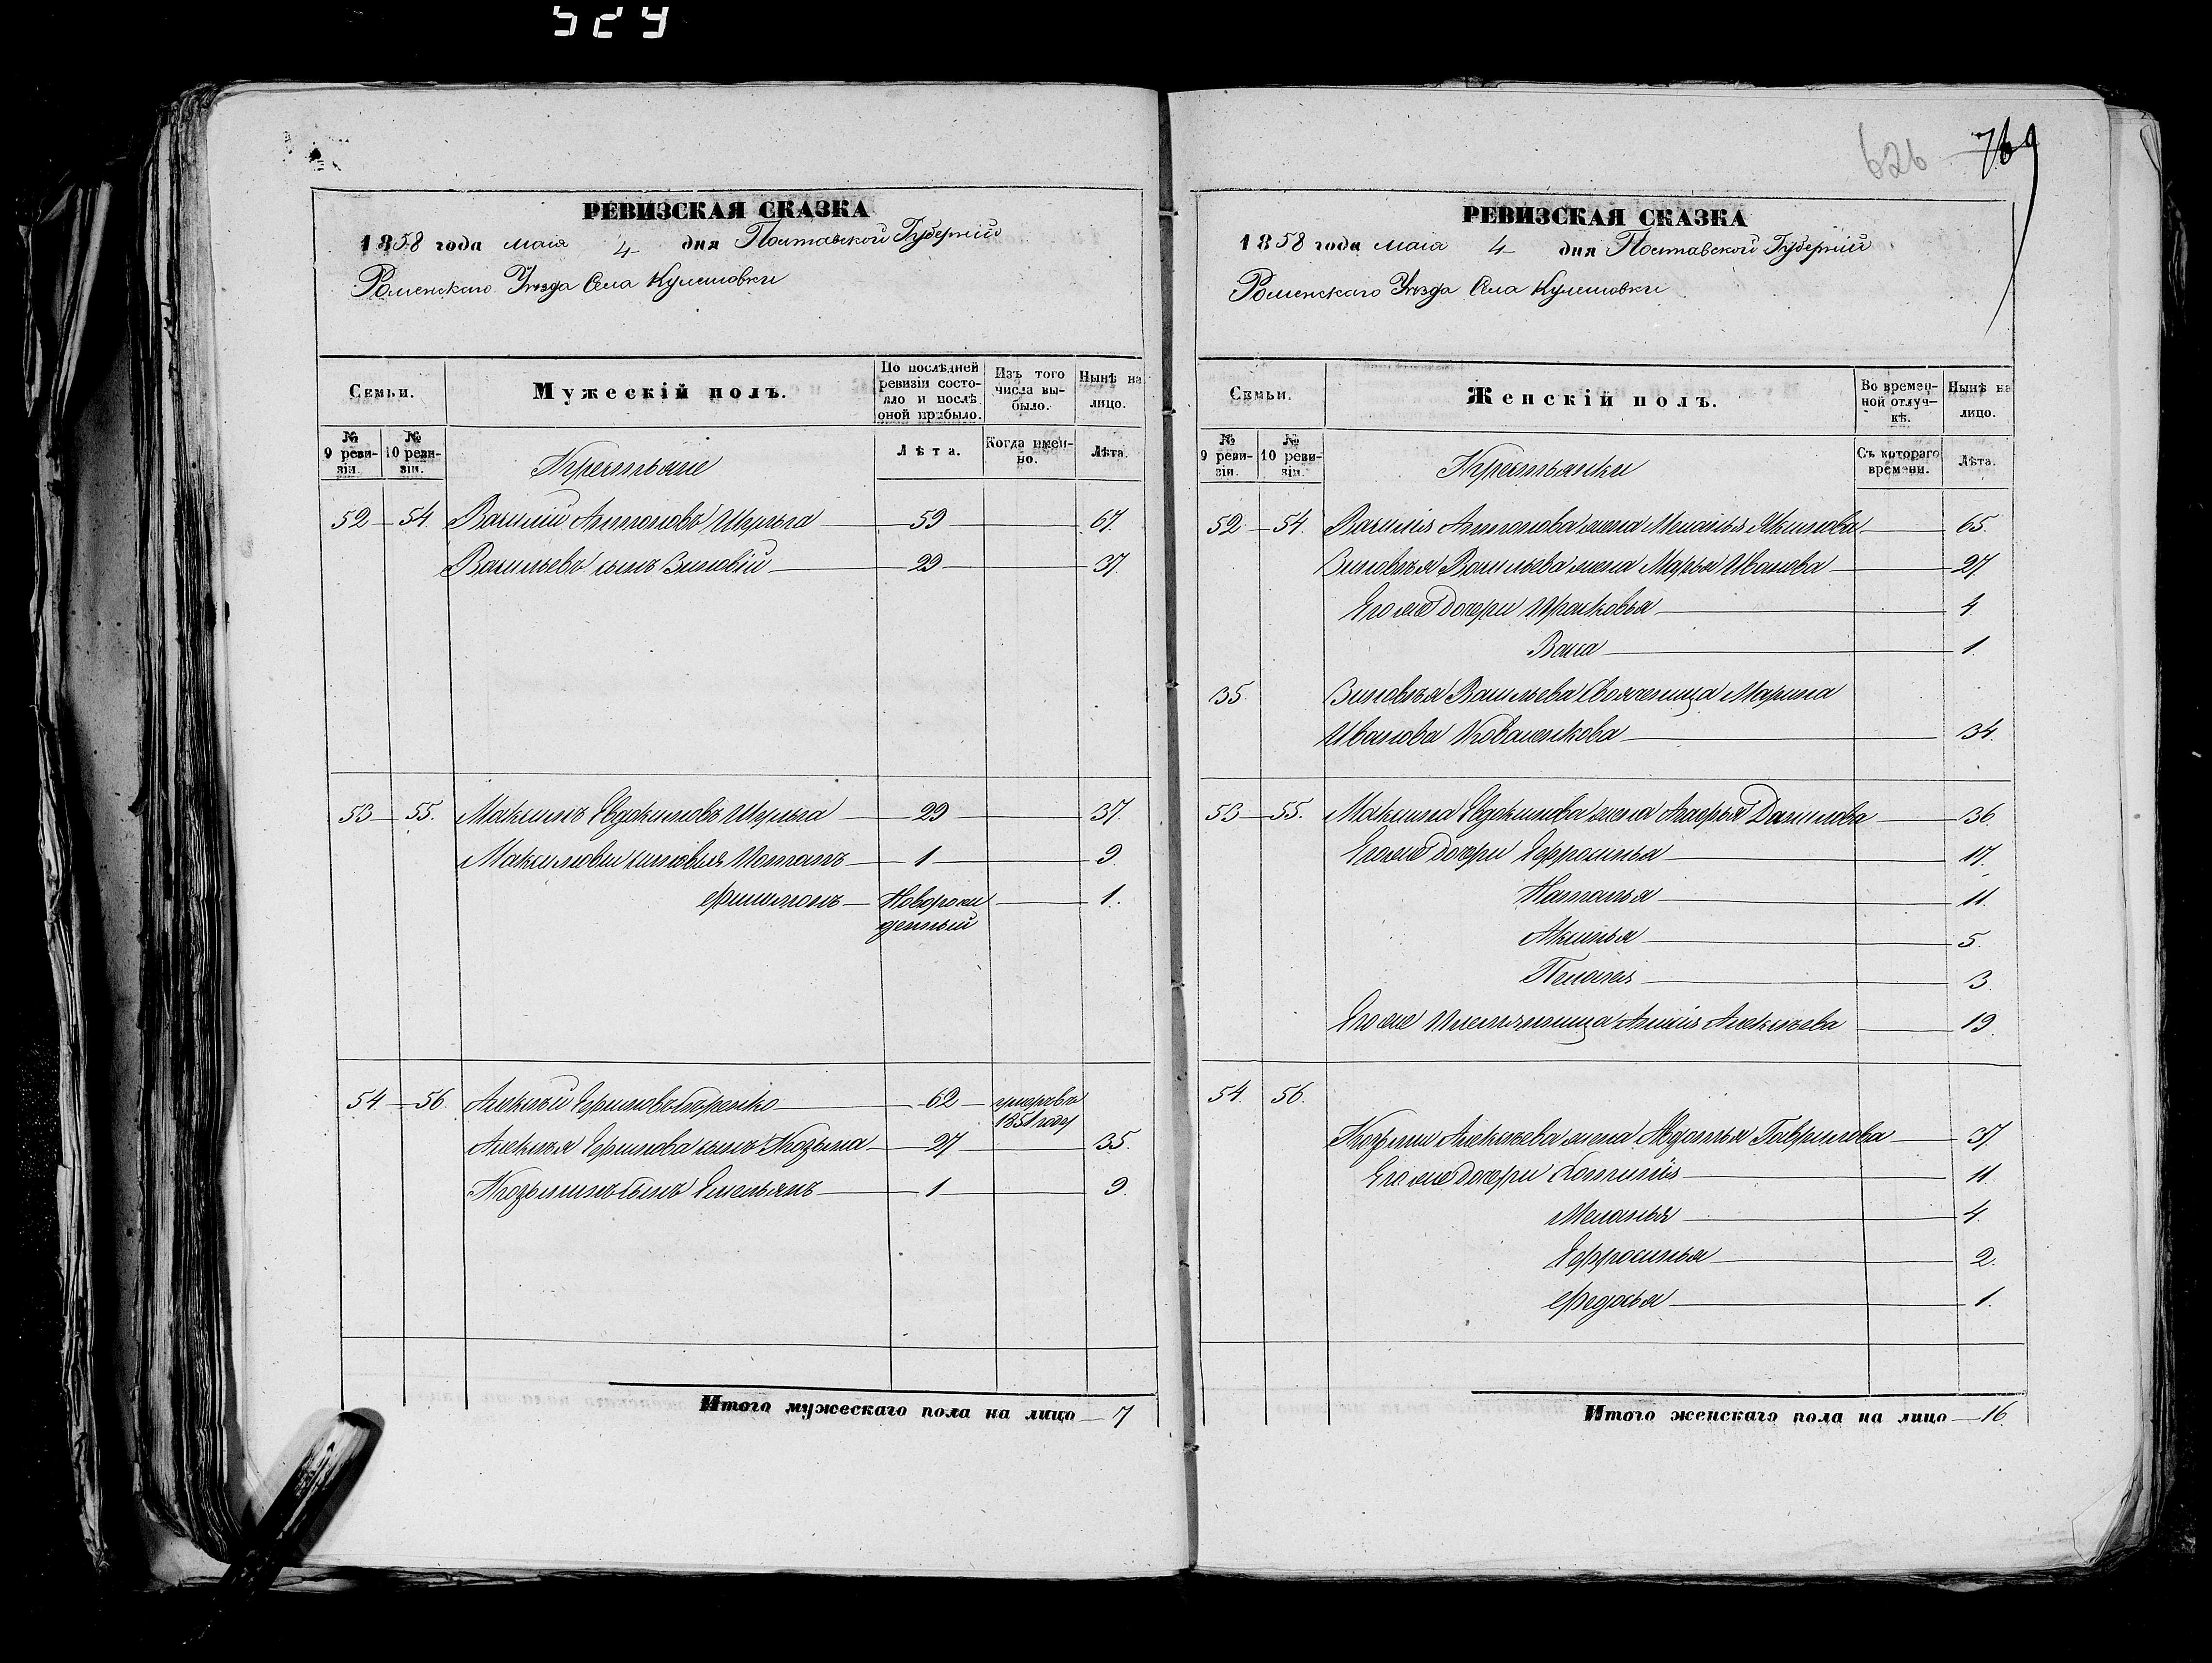 524
РЕВИЗСКАЯ СКАЗКА
1858 года маія 4 дня Полтавской Губерніи
Роменскаго Уезда Села Кулешовки
Семьи.
Мужескій полъ.
По послѣдней ревизіи состояло и послѣ оной прибыло.
Изъ того числа выбыло.
Нынѣ на лицо.
№ 9 ревизіи.
№ 10 ревизіи.
Крестьяне
Лѣта.
Когда именно.
Лѣта.
52 54 Василій Антоновъ Шульга 59 67.
Васильевъ сынъ Зиновій 29 37.
53 55. Максимъ Евдокимовъ Шульга 29 37.
Максимовы сыновья Потапъ 1 9.
Филимонъ Новорожденный 1.
54 56. Алексѣй Ефимовъ 62 умеръ въ 1851 году
Алексѣя Ефимова сынъ Козьма 27 35.
Козьминъ сынъ Емельянъ 1 9.
Итого мужескаго пола на лицо 7
626 769
РЕВИЗСКАЯ СКАЗКА
1858 года маія 4 дня Полтавской Губерніи
Роменскаго Уезда Села Кулешовки
Семьи.
Женскій полъ.
Во временной отлучкѣ.
Нынѣ на лицо.
№ 9 ревизіи.
№ 10 ревизіи.
Крестьянки
Съ котораго времени.
Лѣта.
52 54. Василія Антонова жена Меланья Акимова 65.
Зиновѣя Васильева жена Марья Иванова 27.
Его же дочери Прасковья 4.
Васса 1.
35. Зиновѣя Васильева Свояченица Марина
Иванова Коваленкова 34.
53 55. Максима Евдокимова жена Агафья Данилова 36.
Его же дочери Ефросинья 17.
Наталья 11.
Аксинья 5.
Пелагея 3.
Его же племянница Алексѣева 19.
54. 56.
Козьмы Алексѣева жена Авдотья Гаврилова 37
Его же дочери 11.
Меланья 4.
Ефросинья 2.
Федосья 1.
Итого женскаго пола на лицо 16.